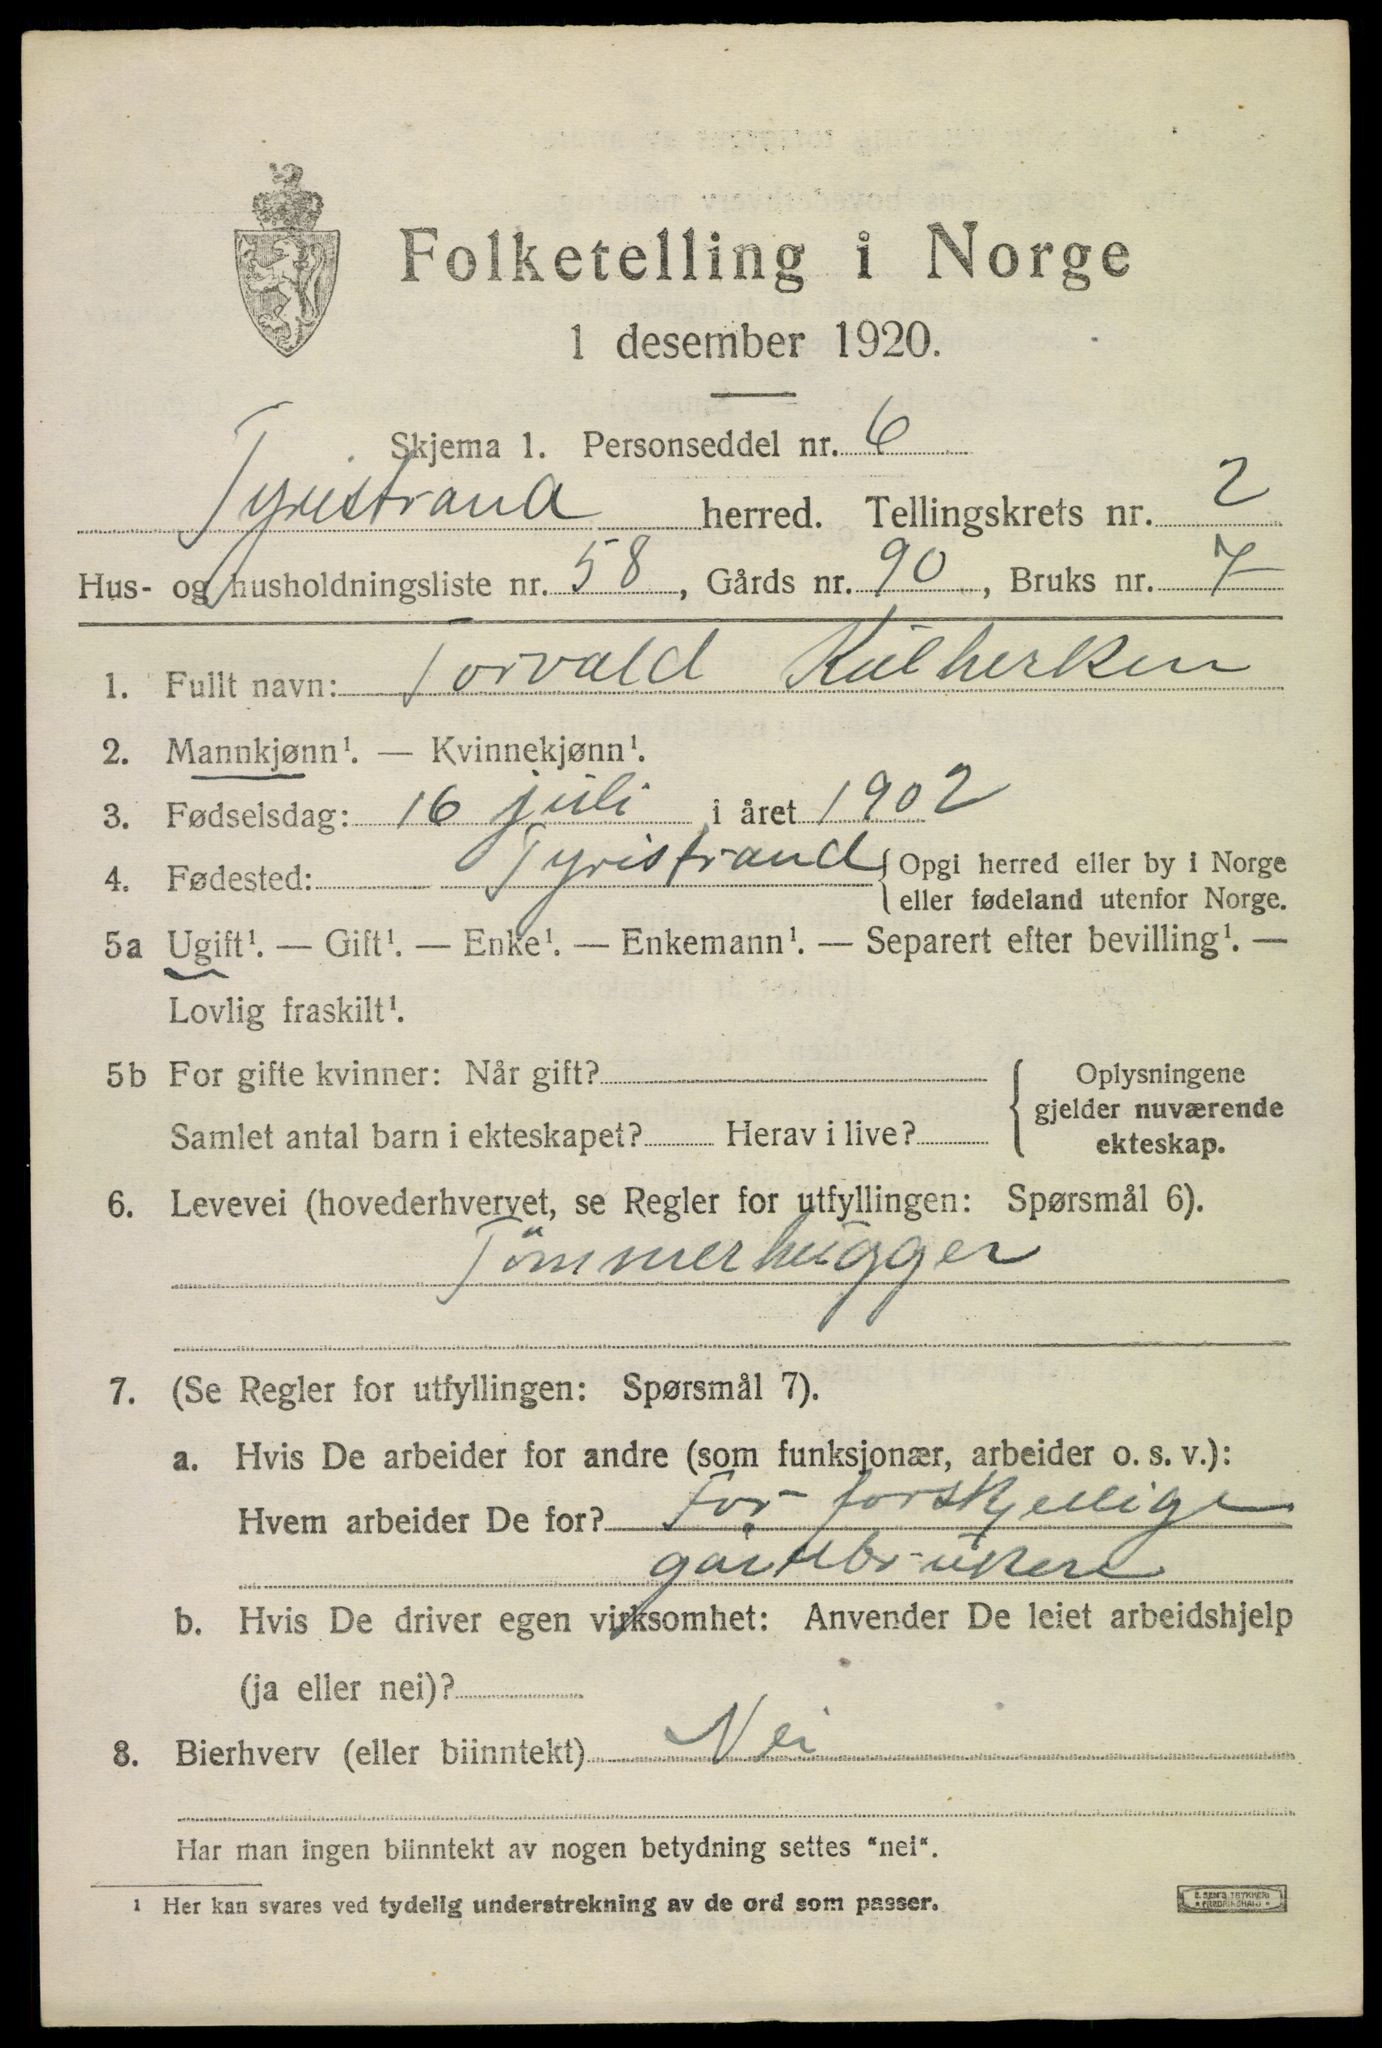 Folketelling i Norge
1 desember 1920.
Skjema 1. Personseddel nr. 6
Tyristrand herred. Tellingskrets nr. 2
Hus- og husholdningsliste nr. 58, Gårds nr. 90, Bruks nr. 7
1. Fullt navn: Torvald Kulherken
2. Mannkjønn¹. — Kvinnekjønn¹.
3. Fødselsdag: 16 juli i året 1902
4. Fødested: Tyristrand { Opgi herred eller by i Norge
eller fødeland utenfor Norge.
5a Ugift¹. — Gift¹. — Enke¹. — Enkemann¹. — Separert efter bevilling¹. —
Lovlig fraskilt¹.
5b For gifte kvinner: Når gift?
Samlet antal barn i ekteskapet? Herav i live?
Oplysningene
gjelder nuværende
ekteskap.
6. Levevei (hovederhvervet, se Regler for utfyllingen: Spørsmål 6).
Tömmerhugger
7. (Se Regler for utfyllingen: Spørsmål 7).
a. Hvis De arbeider for andre (som funksjonær, arbeider o. s. v.):
Hvem arbeider De for? For forskjellige
gårdbrukere
b. Hvis De driver egen virksomhet: Anvender De leiet arbeidshjelp
(ja eller nei)?
8. Bierhverv (eller biinntekt) Nei
Har man ingen biinntekt av nogen betydning settes "nei".
¹ Her kan svares ved tydelig understrekning av de ord som passer.
E. SEM'S TRYKKERI
FREDRIKSHALD